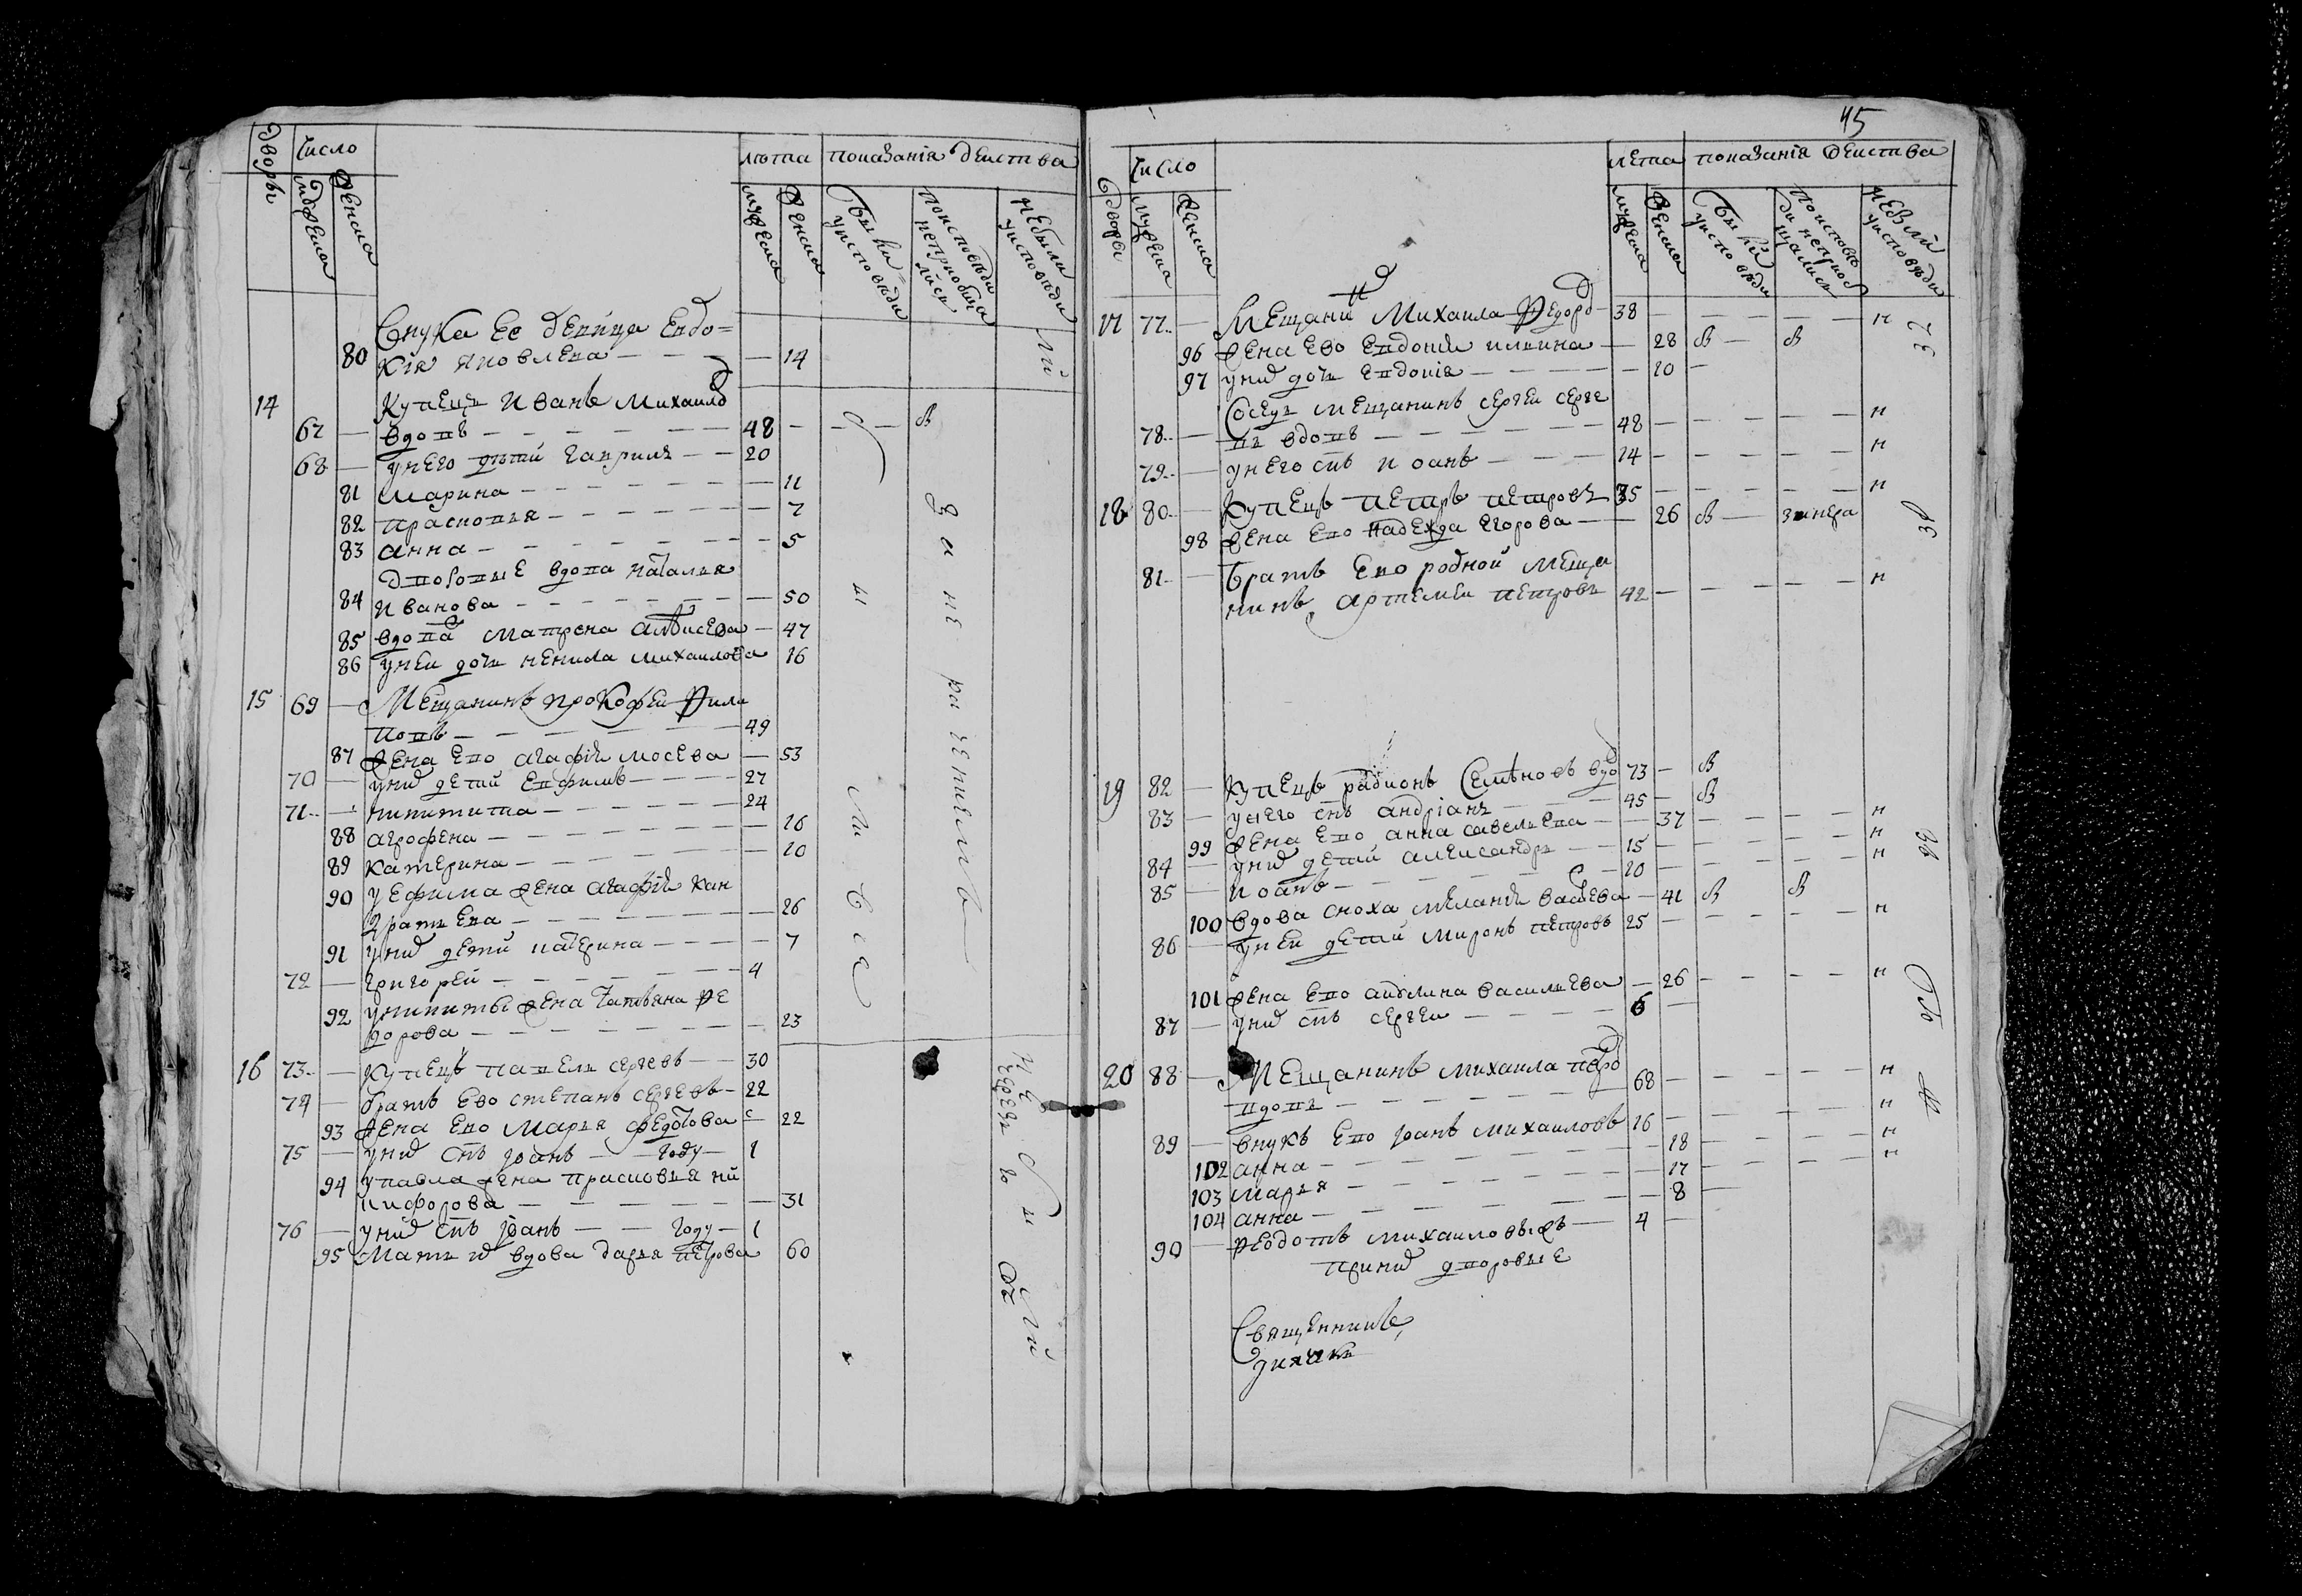 дворы
число
лѣта
показанія действа
мужеска
женска
мужеска
женска
были у исповѣди
по исповѣди не приобщались
не были у исповѣди
80 Внука ее девица Евдо=
кія Яковлева — 14
14 Купецъ Иванъ Михаило
67 — вдовъ — 48
68 — у него дѣтй Гаврилъ — 20
81 Марина — 11
82 Прасковья — 7
83 Анна — 5
Дворовые вдова Наталья
84 Иванова — 50
85 вдова Матрена Алѣксева — 47
86 у неи дочь Ненила Михаилова 16
15 69 — Мещанинъ Прокофеи Фили
повъ — 49
87 жена ево Агафія Мосева — 53
70 — у них детй Евфимъ — 27
71 — Никитита — 24
88 Агрофена — 16
89 Катерина — 10
90 у Ефима жена Агафія Кан
дратьева — 26
91 у них детй Катерина — 7
72 — Григорей — 4
92 у Никиты жена Татьяна Фе
дорова — 23
16 73 — Купецъ Павелъ Сергеевъ — 30
74 — братъ ево Степанъ Сергеевъ — 22
93 жена ево Марья Федотова — 22
75 — у них снъ Иоанъ — году — 1
94 у Павла жена Прасковья Ни
кифорова — 31
76 — у них снъ Иоанъ — году — 1
95 Мать их вдова Дарья Петрова 60
были все
за нерачениемъ
не были
45
дворы
число
лета
показанія действа
мужеска
женска
мужеска
женска
были у исповѣди
по исповѣди не приобщались
не были у исповѣди
17 77 — Мещанин Михаила Федоро 38 — н
96 жена ево Евдокія Ильина — 28 в — в
97 у них дочь Евдокія — 10 —
Соседъ мещанинъ Сергеи Серге
78 — въ вдовъ — 48 — н
79 — у него снъ Иоанъ — 14 — н
18 80 — Купецъ Петръ Петровъ 35 — н
98 жена ево Надежда Егорова — 26 в —
81 — Братъ ево родной меща
нинъ Артемеи Петровъ 42 — н
19 82 — Купецъ Радионъ Семѣновъ вдо 73 — в
83 — у него снъ Андріанъ — 45 — в
99 жена ево Анна Савельева — 37 — н
84 — у них детй Александръ — 15 — н
85 — Иоанъ — 10 — н
100 вдова сноха Меланія Васлева — 41 в в
86 — у неи детй Миронъ Петровъ 25 — н
101 жена ево Акулина Васильева — 26 — н
87 — у них снъ Сергеи — 6 —
20 88 — Мещанинъ Михаила Петро
вдовъ — 68 — н
89 — внукъ ево Иоанъ Михаиловъ 16 — н
102 Анна — 18 — н
103 Марья — 17 — н
104 Анна — 8 —
90 — Феодотъ Михаиловыхъ — 4 —
При них дворовые
Священникъ